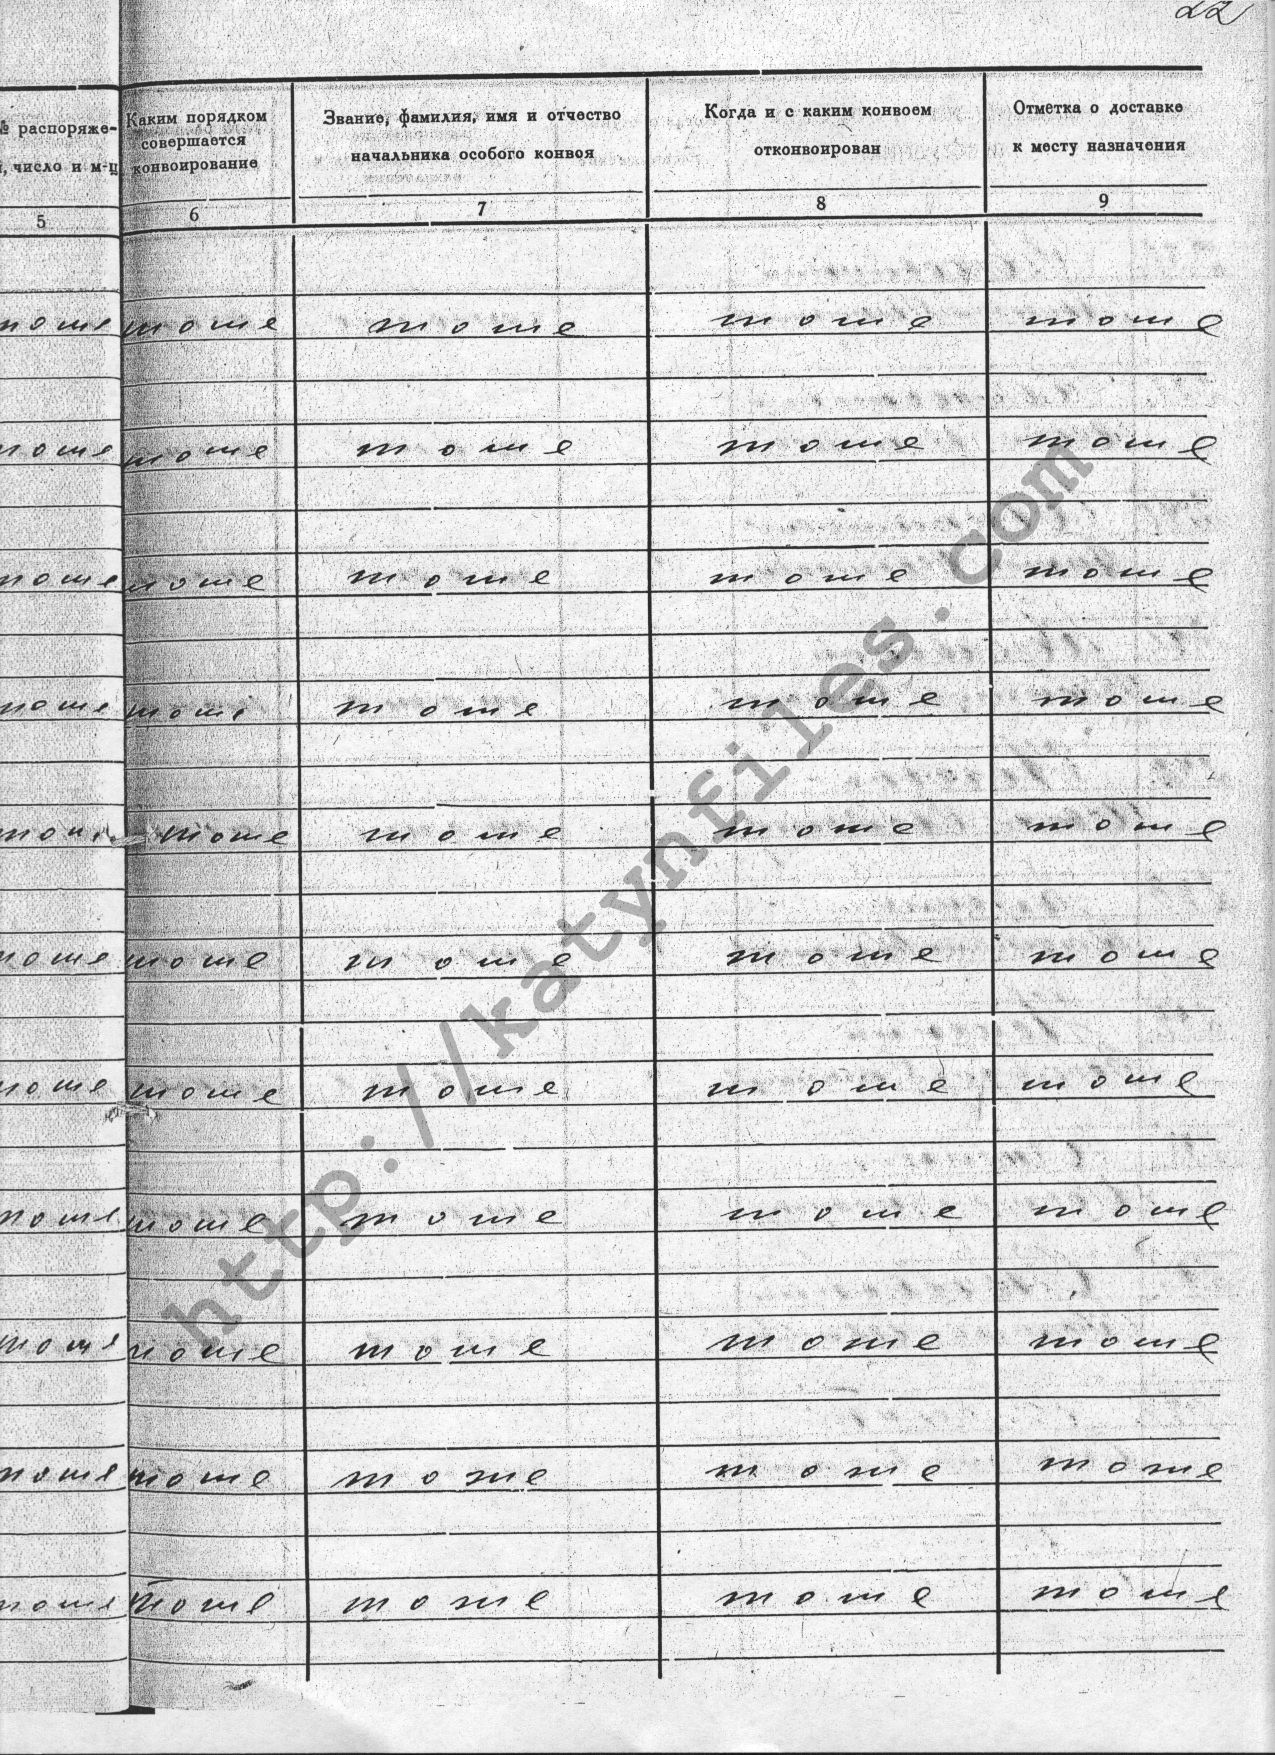 22
№ распоряже-
, число и м-ц
5
Каким порядком
совершается
конвоирование
6
Звание, фамилия, имя и отчество
начальника особого конвоя
7
Когда и с каким конвоем
отконвоирован
8
Отметка о доставке
к месту назначения
9
тоже тоже тоже тоже тоже
тоже тоже тоже тоже тоже
тоже тоже тоже тоже тоже
тоже тоже тоже тоже тоже
тоже тоже тоже тоже тоже
тоже тоже тоже тоже тоже
тоже тоже тоже тоже тоже
тоже тоже тоже тоже тоже
тоже тоже тоже тоже тоже
тоже тоже тоже тоже тоже
тоже тоже тоже тоже тоже
http://katynfiles.com